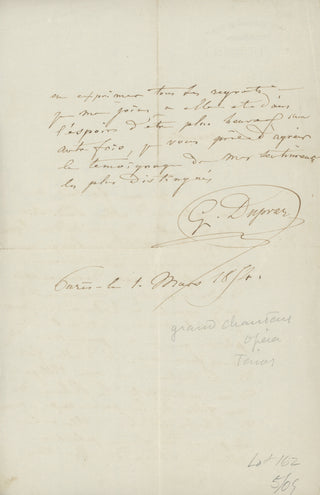 en exprimer tous ses regrets.
je me joins a elle et dans
l'espoir d'être plus heureux une
autre fois, je vous prie d'agréer
le temoignage de mes sentiments
les plus distingués
G. Duprez
Paris - le 1. Mars 1854.
grand chanteur
opéra
Ténor
Lot 162
5/09